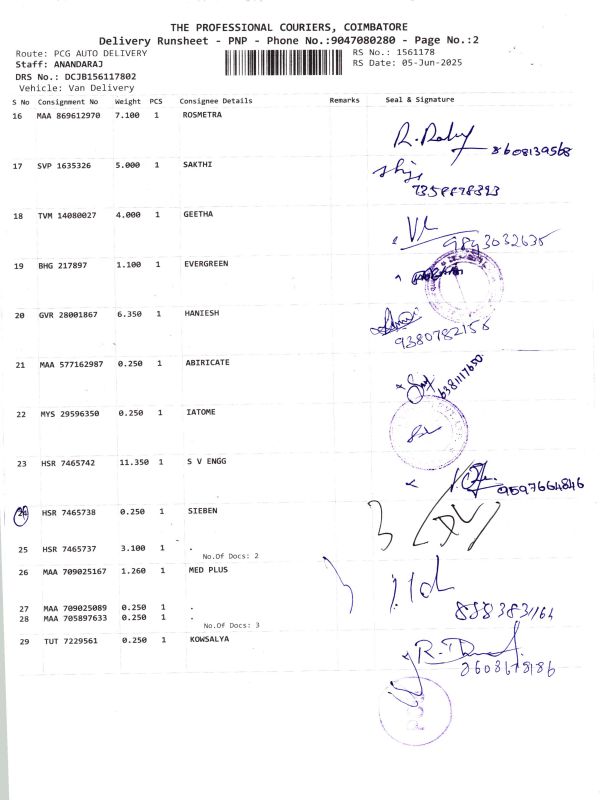 THE PROFESSIONAL COURIERS, COIMBATORE
Delivery Runsheet - PNP - Phone No.:9047080280 - Page No.:2
Route: PCG AUTO DELIVERY RS No.: 1561178
Staff: ANANDARAJ RS Date: 05-Jun-2025
DRS No.: DCJB156117802
Vehicle: Van Delivery
S No Consignment No Weight PCS Consignee Details Remarks Seal & Signature
16 MAA 869612970 7.100 1 ROSMETRA
8608139568
17 SVP 1635326 5.000 1 SAKTHI
18 TVM 14080027 4.000 1 GEETHA
9843032635
19 BHG 217897 1.100 1 EVERGREEN
20 GVR 28001867 6.350 1 HANIESH
9380782156
21 MAA 577162987 0.250 1 ABIRICATE
6381117650
22 MYS 29596350 0.250 1 IATOME
23 HSR 7465742 11.350 1 S V ENGG
9597664846
24 HSR 7465738 0.250 1 SIEBEN
25 HSR 7465737 3.100 1 .
No.Of Docs: 2
26 MAA 709025167 1.260 1 MED PLUS
27 MAA 709025089 0.250 1 .
28 MAA 705897633 0.250 1 .
No.Of Docs: 3
29 TUT 7229561 0.250 1 KOWSALYA